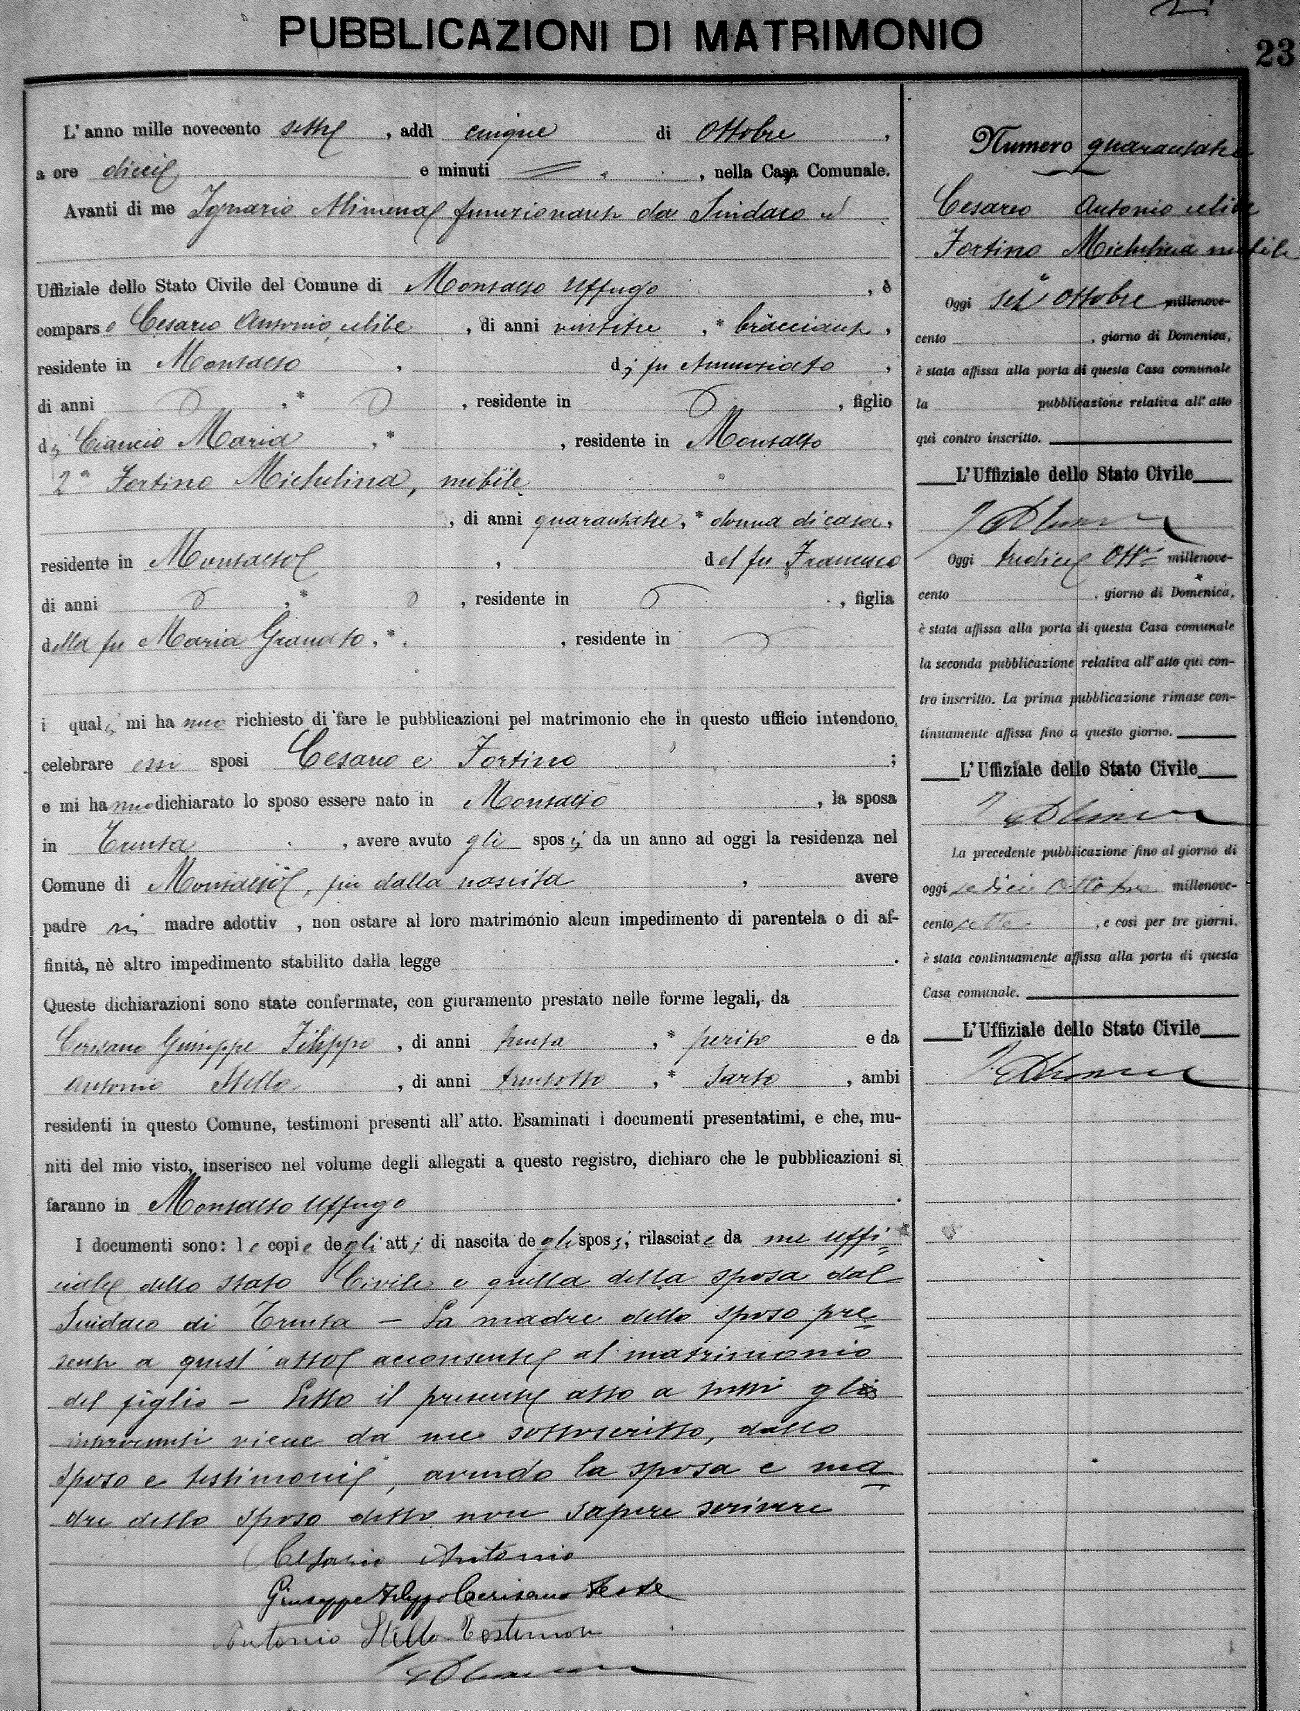 PUBBLICAZIONI DI MATRIMONIO
23
L'anno mille novecento sette, addì cinque di Ottobre,
a ore dieci e minuti , nella Casa Comunale.
Avanti di me Ignazio Alimena funzionante da Sindaco ed
Uffiziale dello Stato Civile del Comune di Montalto Uffugo, è
comparso Cesario Antonio celibe, di anni ventitre, * bracciante,
residente in Montalto, di fu Annunziato,
di anni , * , residente in , figlio
di Ciancio Maria, * , residente in Montalto
2° Fortino Michelina, nubile
, di anni quarantatre, * donna di casa,
residente in Montalto, del fu Francesco
di anni , * , residente in , figlia
della fu Maria Granato, * , residente in
i quali mi hanno richiesto di fare le pubblicazioni pel matrimonio che in questo ufficio intendono
celebrare essi sposi Cesario e Fortino ;
e mi hanno dichiarato lo sposo essere nato in Montalto, la sposa
in Trenta, avere avuto gli sposi da un anno ad oggi la residenza nel
Comune di Montalto, fin dalla nascita, avere
padre nè madre adottiv , non ostare al loro matrimonio alcun impedimento di parentela o di af-
finità, nè altro impedimento stabilito dalla legge .
Queste dichiarazioni sono state confermate, con giuramento prestato nelle forme legali, da
Cerisano Giuseppe Filippo, di anni trenta, * perito e da
Antonio Stello, di anni trentotto, * sarto, ambi
residenti in questo Comune, testimoni presenti all'atto. Esaminati i documenti presentatimi, e che, mu-
niti del mio visto, inserisco nel volume degli allegati a questo registro, dichiaro che le pubblicazioni si
faranno in Montalto Uffugo.
I documenti sono: le copie degli atti di nascita degli sposi, rilasciate da me uffi-
ciale dello stato Civile e quella della sposa dal
Sindaco di Trenta — La madre dello sposo pre-
sente a quest'atto acconsente al matrimonio
del figlio — Letto il presente atto a tutti gli
intervenuti viene da me sottoscritto, dallo
sposo e testimoni, avendo la sposa e ma-
dre dello sposo detto non sapere scrivere
Cesario Antonio
Giuseppe Filippo Cerisano Teste
Antonio Stello Testimone
Numero quarantatre
Cesario Antonio celibe
Fortino Michelina nubile
Oggi sei Ottobre millenove-
cento , giorno di Domenica,
è stata affissa alla porta di questa Casa comunale
la pubblicazione relativa all'atto
qui contro inscritto.
L'Uffiziale dello Stato Civile
Oggi tredici Ott.e millenove-
cento , giorno di Domenica,
è stata affissa alla porta di questa Casa comunale
la seconda pubblicazione relativa all'atto qui con-
tro inscritto. La prima pubblicazione rimase con-
tinuamente affissa fino a questo giorno.
L'Uffiziale dello Stato Civile
La precedente pubblicazione fino al giorno di
oggi sedici Ottobre millenove-
cento sette, e così per tre giorni,
è stata continuamente affissa alla porta di questa
Casa comunale.
L'Uffiziale dello Stato Civile